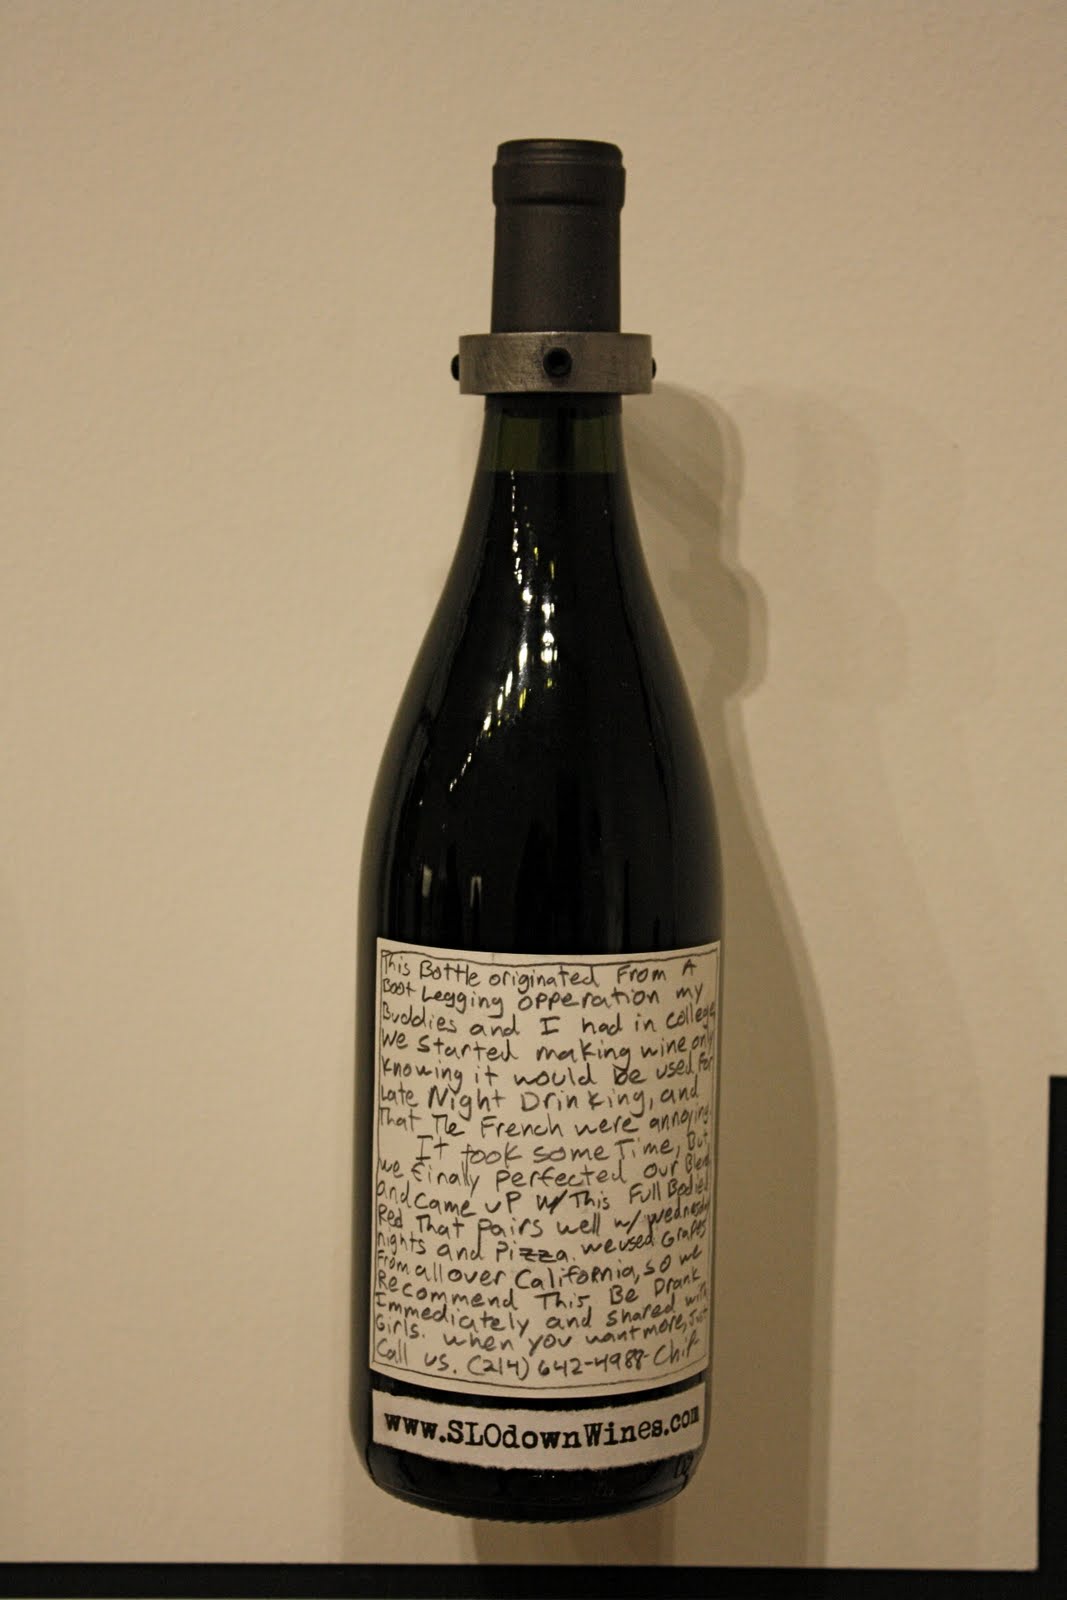 This Bottle originated From A
Boot Legging opperation my
Buddies and I had in college,
We started making wine only
knowing it would be used For
Late Night Drinking, and
That The French were annoying.
It took some Time, But
we finally perfected our Blend
and came up w/ This Full Bodied
Red That pairs well w/ wednesday
nights and Pizza. we used Grapes
From all over California, so we
Recommend This Be Drank
Immediately and shared with
Girls. when you want more, Just
Call us. (214) 642-4988-Chip
www.SLOdownWines.com